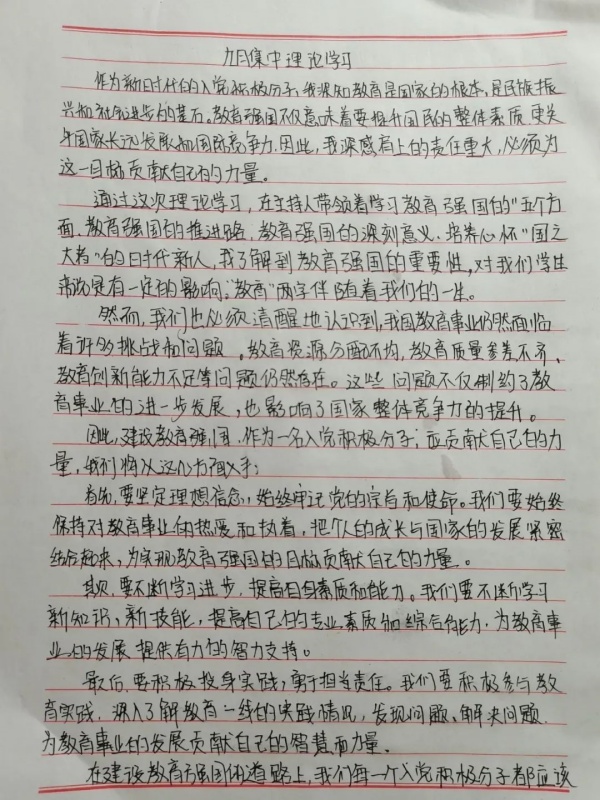 九月集中理论学习
作为新时代的入党积极分子,我深知教育是国家的根本,是民族振
兴和社会进步的基石。教育强国不仅意味着要提升国民的整体素质,更关
乎国家长远发展和国际竞争力。因此,我深感肩上的责任重大,必须为
这一目标贡献自己的力量。
通过这次理论学习,在主持人带领着学习教育强国的"五个方
面、教育强国的推进路、教育强国的深刻意义、培养心怀"国之
大者"的时代新人,我了解到教育强国的重要性,对我们学生
来说是有一定的影响,"教育"两字伴随着我们的一生。
然而,我们也必须清醒地认识到,我国教育事业仍然面临
着许多挑战和问题。教育资源分配不均,教育质量参差不齐、
教育创新能力不足等问题仍然存在。这些问题不仅制约了教
育事业的进一步发展,也影响了国家整体竞争力的提升。
因此,建设教育强国,作为一名入党积极分子;应贡献自己的力
量,我们将从这几方面入手:
首先,要坚定理想信念,始终牢记党的宗旨和使命。我们要始终
保持对教育事业的热爱和执着,把个人的成长与国家的发展紧密
结合起来,为实现教育强国的目标贡献自己的力量。
其次,要不断学习进步,提高自身素质和能力。我们要不断学习
新知识,新技能,提高自己的专业素质和综合能力,为教育事
业的发展提供有力的智力支持。
最后,要积极投身实践,勇于担当责任。我们要积极参与教
育实践,深入了解教育一线的实践情况,发现问题、解决问题,
为教育事业的发展贡献自己的智慧和力量.
在建设教育强国的道路上,我们每一个入党积极分子都应该